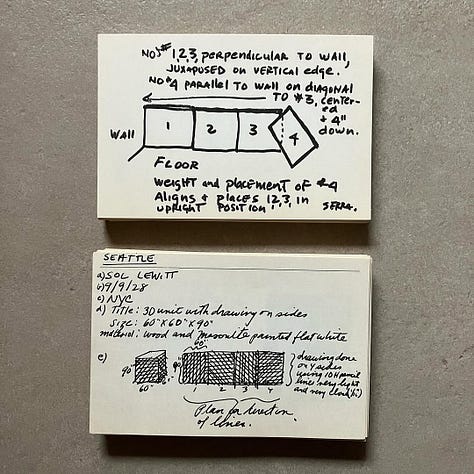 NOS# 1,2,3, PERPENDICULAR TO WALL,
JUXAPOSED ON VERTICAL EDGE.
NO #4 PARALLEL TO WALL ON DIAGONAL
TO #3, CENTER-
ED
+ 4"
DOWN.
WALL
1
2
3
4
FLOOR
WEIGHT AND PLACEMENT OF #4
ALIGNS + PLACES 1,2,3, IN
UPRIGHT POSITION
SERRA.
SEATTLE
a) SOL LEWITT
b) 9/9/28
c) NYC
d) Title: 3D unit with drawing on sides
Size: 60"X60"X90"
material: wood and masonite painted flat white
e)
90"
60"
60"
90"
2
3
4
drawing done
on 4 sides
using 10H pencil
lines very light
and very close
Plan for direction
of lines.